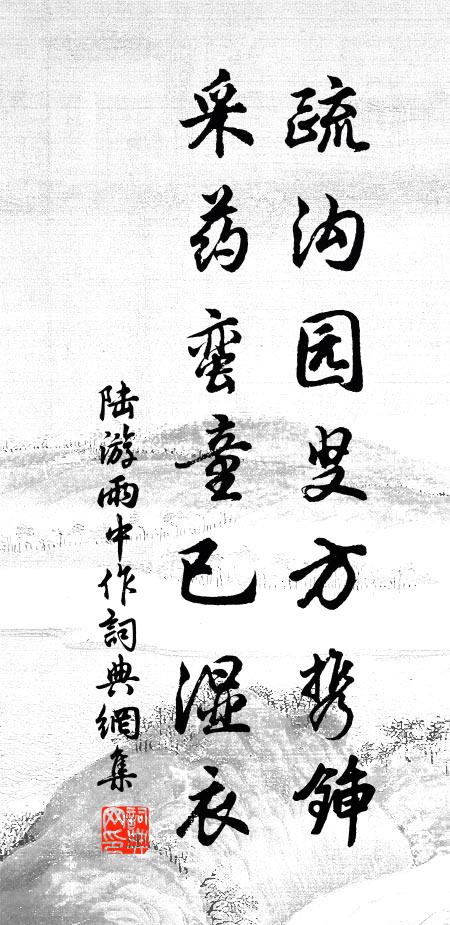 疏沟园叟方携锸
采药蛮童已湿衣
陆游雨中作词典網集